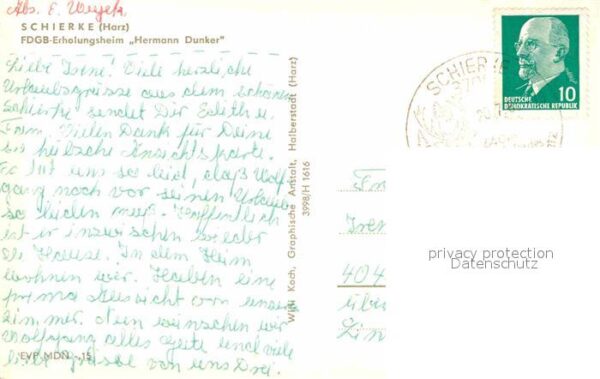 Abs. E.
SCHIERKE (Harz)
FDGB-Erholungsheim „Hermann Dunker"
Liebe Irene! Viele herzliche
Urlaubsgrüsse aus dem schönen
Schierke sendet Dir Edith u.
Fam. Vielen Dank für Deine
hübsche
Es tut uns so leid, daß Wolf-
gang noch vor seinen Urlaub
so leiden muß. Hoffentlich
ist er inzwischen wieder
zu Hause. In dem Heim
wohnen wir. Haben eine
prima Aussicht von unserem
Zimmer. Nun wünschen wir
Wolfgang alles Gute und viele
liebe Grüsse von uns Drei.
EVP MDN -,15
Willi Koch, Graphische Anstalt, Halberstadt (Harz)
3998/H 1616
SCHIERKE
10
DEUTSCHE
DEMOKRATISCHE REPUBLIK
404
privacy protection
Datenschutz